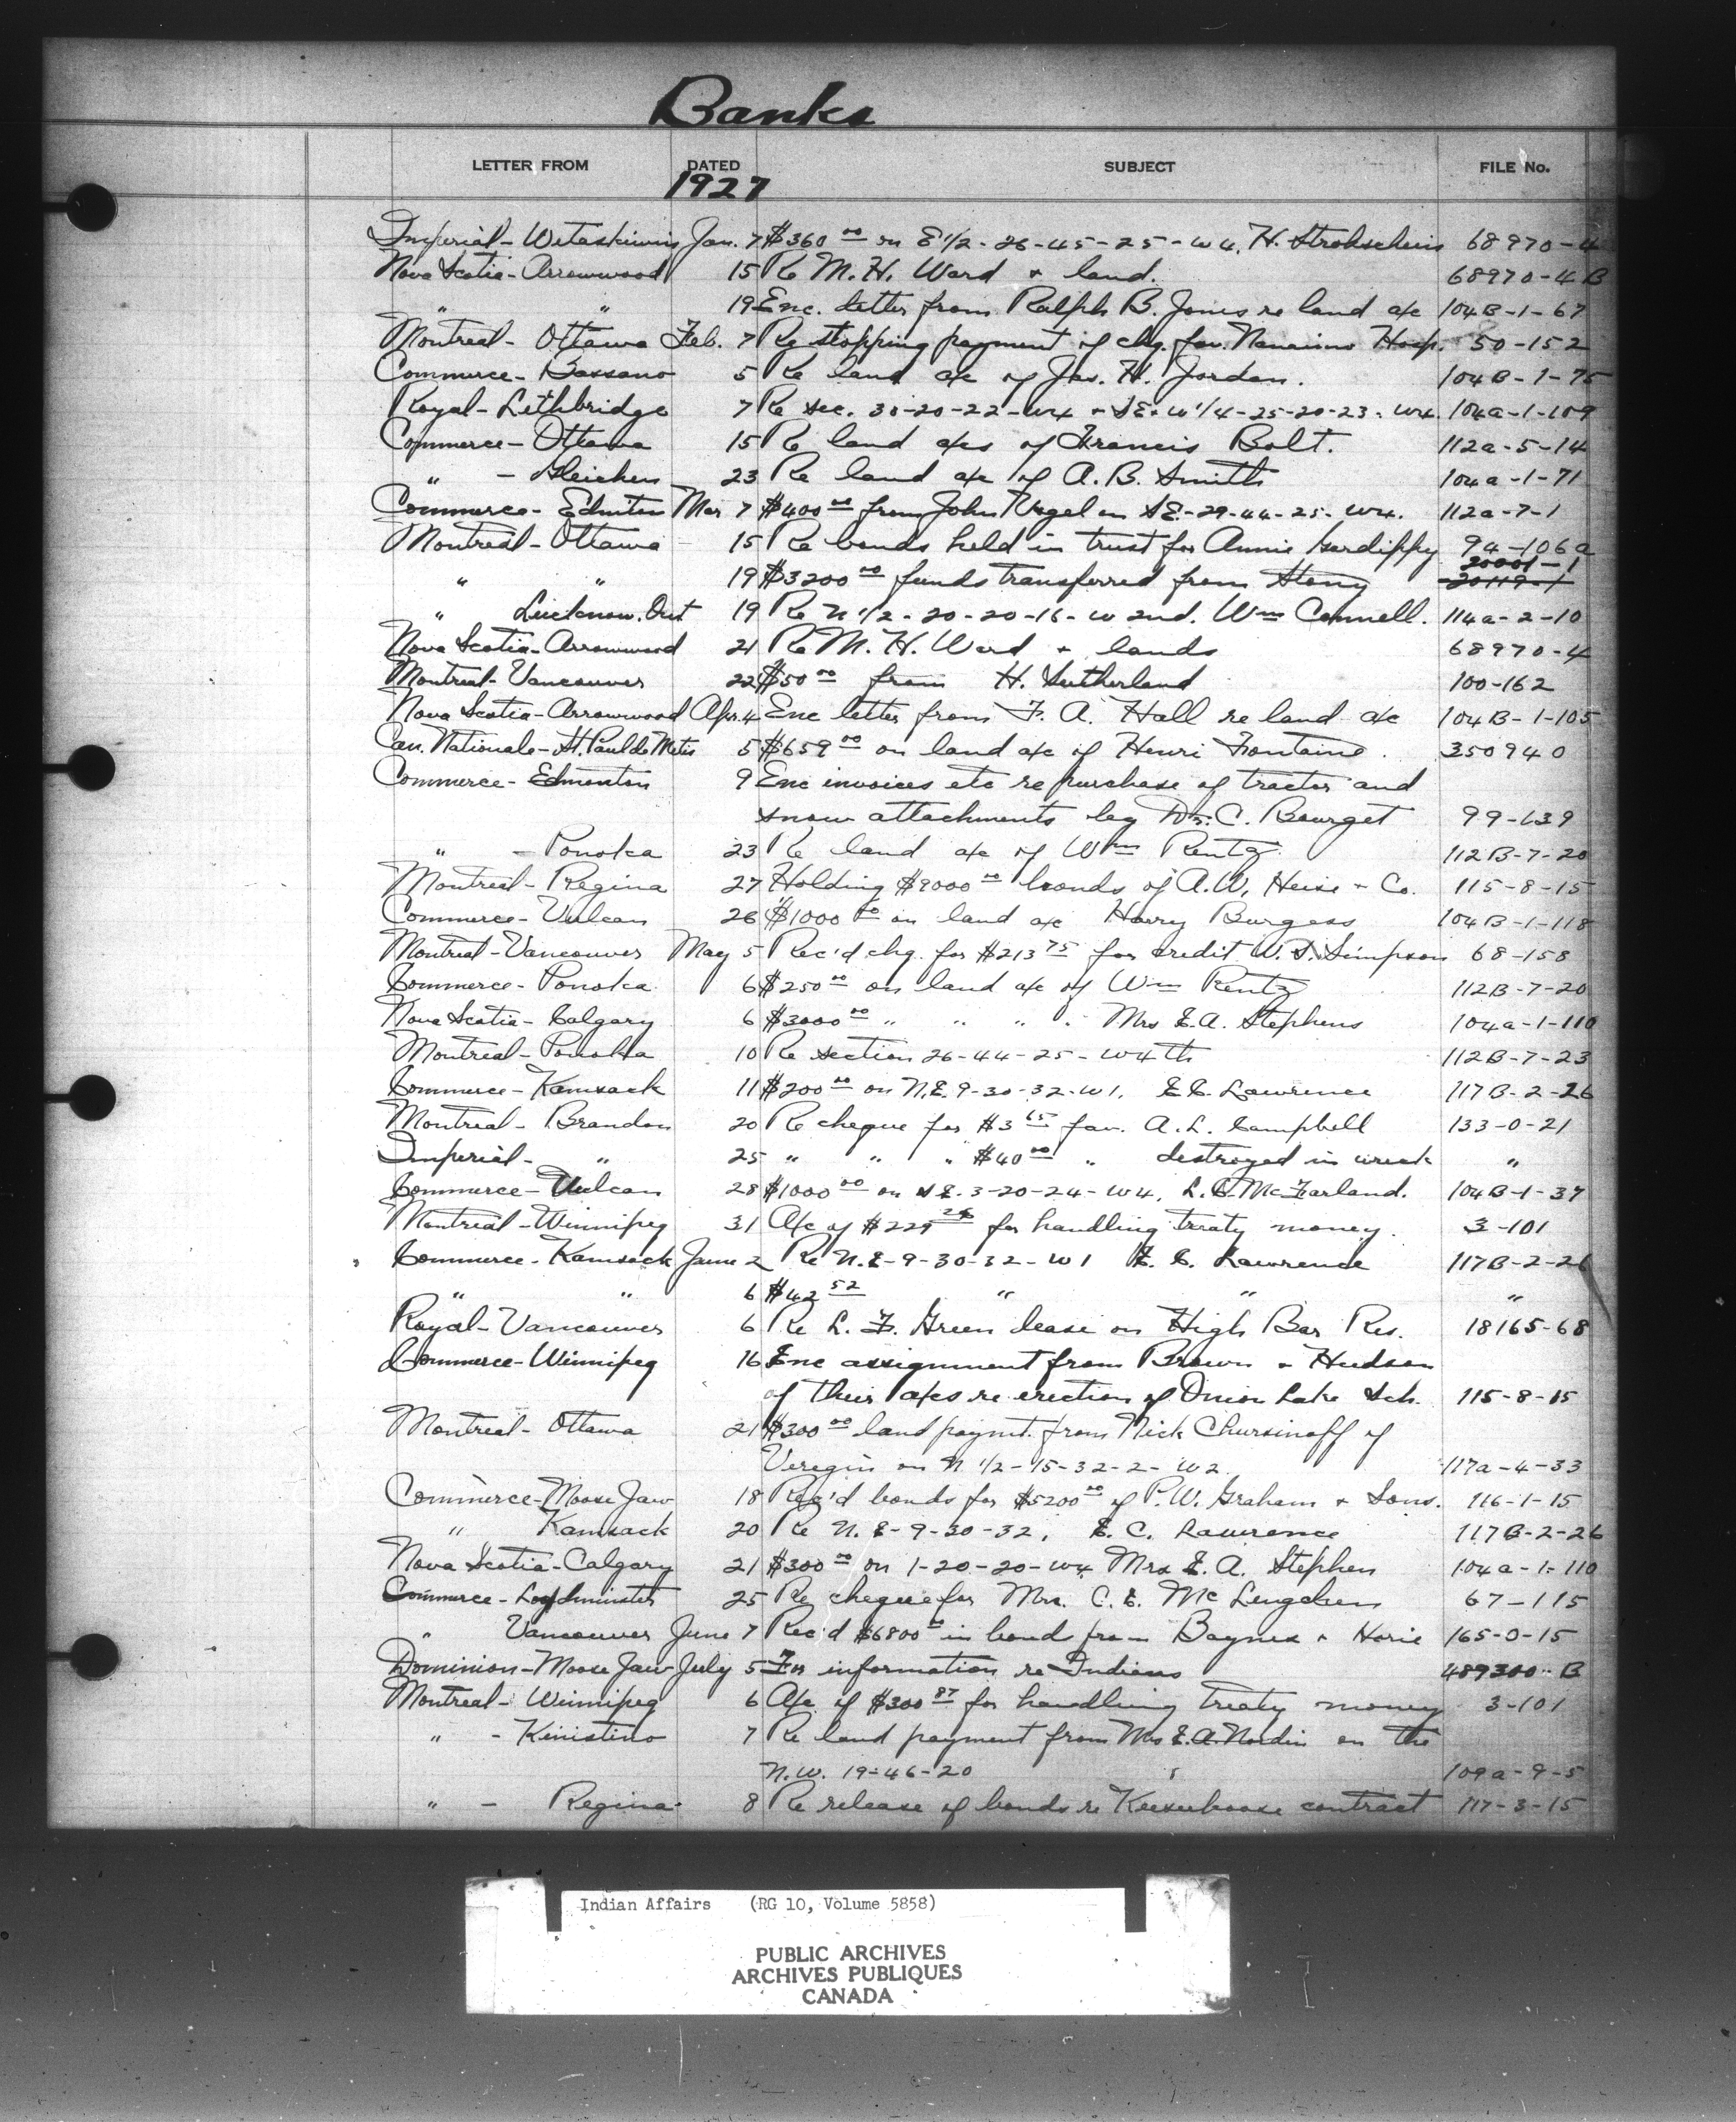 Banks
LETTER FROM DATED SUBJECT FILE No.
1927
Imperial - Wetaskiwin Jan. 7 $360 00 on E 1/2 - 26-45-25-W4. H. Strohschein 68970-4
Nova Scotia - Arrowwood 15 Re M. H. Ward + land. 68970-4B
" " 19 Enc. letter from Ralph B. Jones re land a/c 104B-1-67
Montreal - Ottawa Feb. 7 Re stopping payment of chq. fav. Nanaimo Hosp. 50-152
Commerce - Bassano 5 Re land a/c of Jas. H. Jordan. 104B-1-75
Royal - Lethbridge 7 Re sec. 30-20-22-W4 + SE + W 1/4-25-20-23-W4. 104a-1-109
Commerce - Ottawa 15 Re land a/cs of Francis Bolt. 112a-5-14
" - Gleichen 23 Re land a/c of A. B. Smith 104a-1-71
Commerce - Edmiton Mar 7 $400 00 from John Vogel on SE-29-44-25-W4. 112a-7-1
Montreal - Ottawa 15 Re bonds held in trust for Annie 94-106a
20001-1
" " 19 $3200 00 funds transferred from Stony 20119-1
" Lucknow. Ont 19 Re N 1/2-20-20-16-W 2nd. Wm Connell. 114a-2-10
Nova Scotia - Arrowwood 21 Re M. H. Ward + lands 68970-4
Montreal - Vancouver 22 $50 00 from H. Sutherland 100-162
Nova Scotia - Arrowwood Apr. 4 Enc letter from F. A. Hall re land a/c 104B-1-105
Can. Nationale - St. Paul de Metis 5 $659 00 on land a/c of Henri Fontaine. 350940
Commerce - Edmonton 9 Enc invoices etc re purchase of tractor and
snow attachments by Dr. C. Bourget 99-139
" - Ponoka 23 Re land a/c of Wm Rentz 112B-7-20
Montreal - Regina 27 Holding $9000 00 bonds of A. W. Heise + Co. 115-8-15
Commerce - Vulcan 26 $1000 00 on land a/c Harry Burgess 104B-1-118
Montreal - Vancouver May 5 Rec'd chq. for $213 75 for credit W. S. Simpson 68-158
Commerce - Ponoka 6 $250 00 on land a/c of Wm Rentz 112B-7-20
Nova Scotia - Calgary 6 $3000 00 " " " " Mrs E. A. Stephens 104a-1-110
Montreal - Ponoka 10 Re section 26-44-25-W4th 112B-7-23
Commerce - Kamsack 11 $200 00 on N.E. 9-30-32-W1. E. C. Lawrence 117B-2-26
Montreal - Brandon 20 Re cheque for $3 65 fav. A. L. Campbell 133-0-21
Imperial - " 25 " " " $40 00 " destroyed in wreck "
Commerce - Vulcan 28 $1000 00 on S E. 3-20-24-W4. L. C. McFarland. 104B-1-37
Montreal - Winnipeg 31 A/c of $229 26 for handling treaty money. 3-101
Commerce - Kamsack June 2 Re N.E-9-30-32-W1 E. C. Lawrence 117B-2-26
" " 6 $42 52 " " "
Royal - Vancouver 6 Re L. F. Green lease on High Bar Res. 18165-68
Commerce - Winnipeg 16 Enc assignment from Brown + Hudson
of their a/cs re erection of Onion Lake Sch. 115-8-15
Montreal - Ottawa 21 $300 00 land paymt. from Nick Chursinoff of
Veregin on N 1/2-15-32-2-W2. 117a-4-33
Commerce - Moose Jaw 18 Rec'd bonds for $5200 00 of P. W. Graham + Sons. 116-1-15
" Kamsack 20 Re N. E-9-30-32. E. C. Lawrence 117B-2-26
Nova Scotia - Calgary 21 $300 00 on 1-20-20-W4 Mrs E. A. Stephen 104a-1-110
Commerce - Loydminster 25 Re cheque for Mrs. C. E. 67-115
" Vancouver June 7 Rec'd $6800 00 in bonds from Baynes + Horie 165-0-15
Dominion - Moose Jaw July 5 For information re Indians 489300-B
Montreal - Winnipeg 6 A/c of $300 87 for handling treaty money 3-101
" - Kinistino 7 Re land payment from Mrs E. A. Nordin on the
N.W. 19-46-20 109a-9-5
" - Regina 8 Re release of bonds re Keeseekoose contract 117-3-15
Indian Affairs (RG 10, Volume 5858)
PUBLIC ARCHIVES
ARCHIVES PUBLIQUES
CANADA